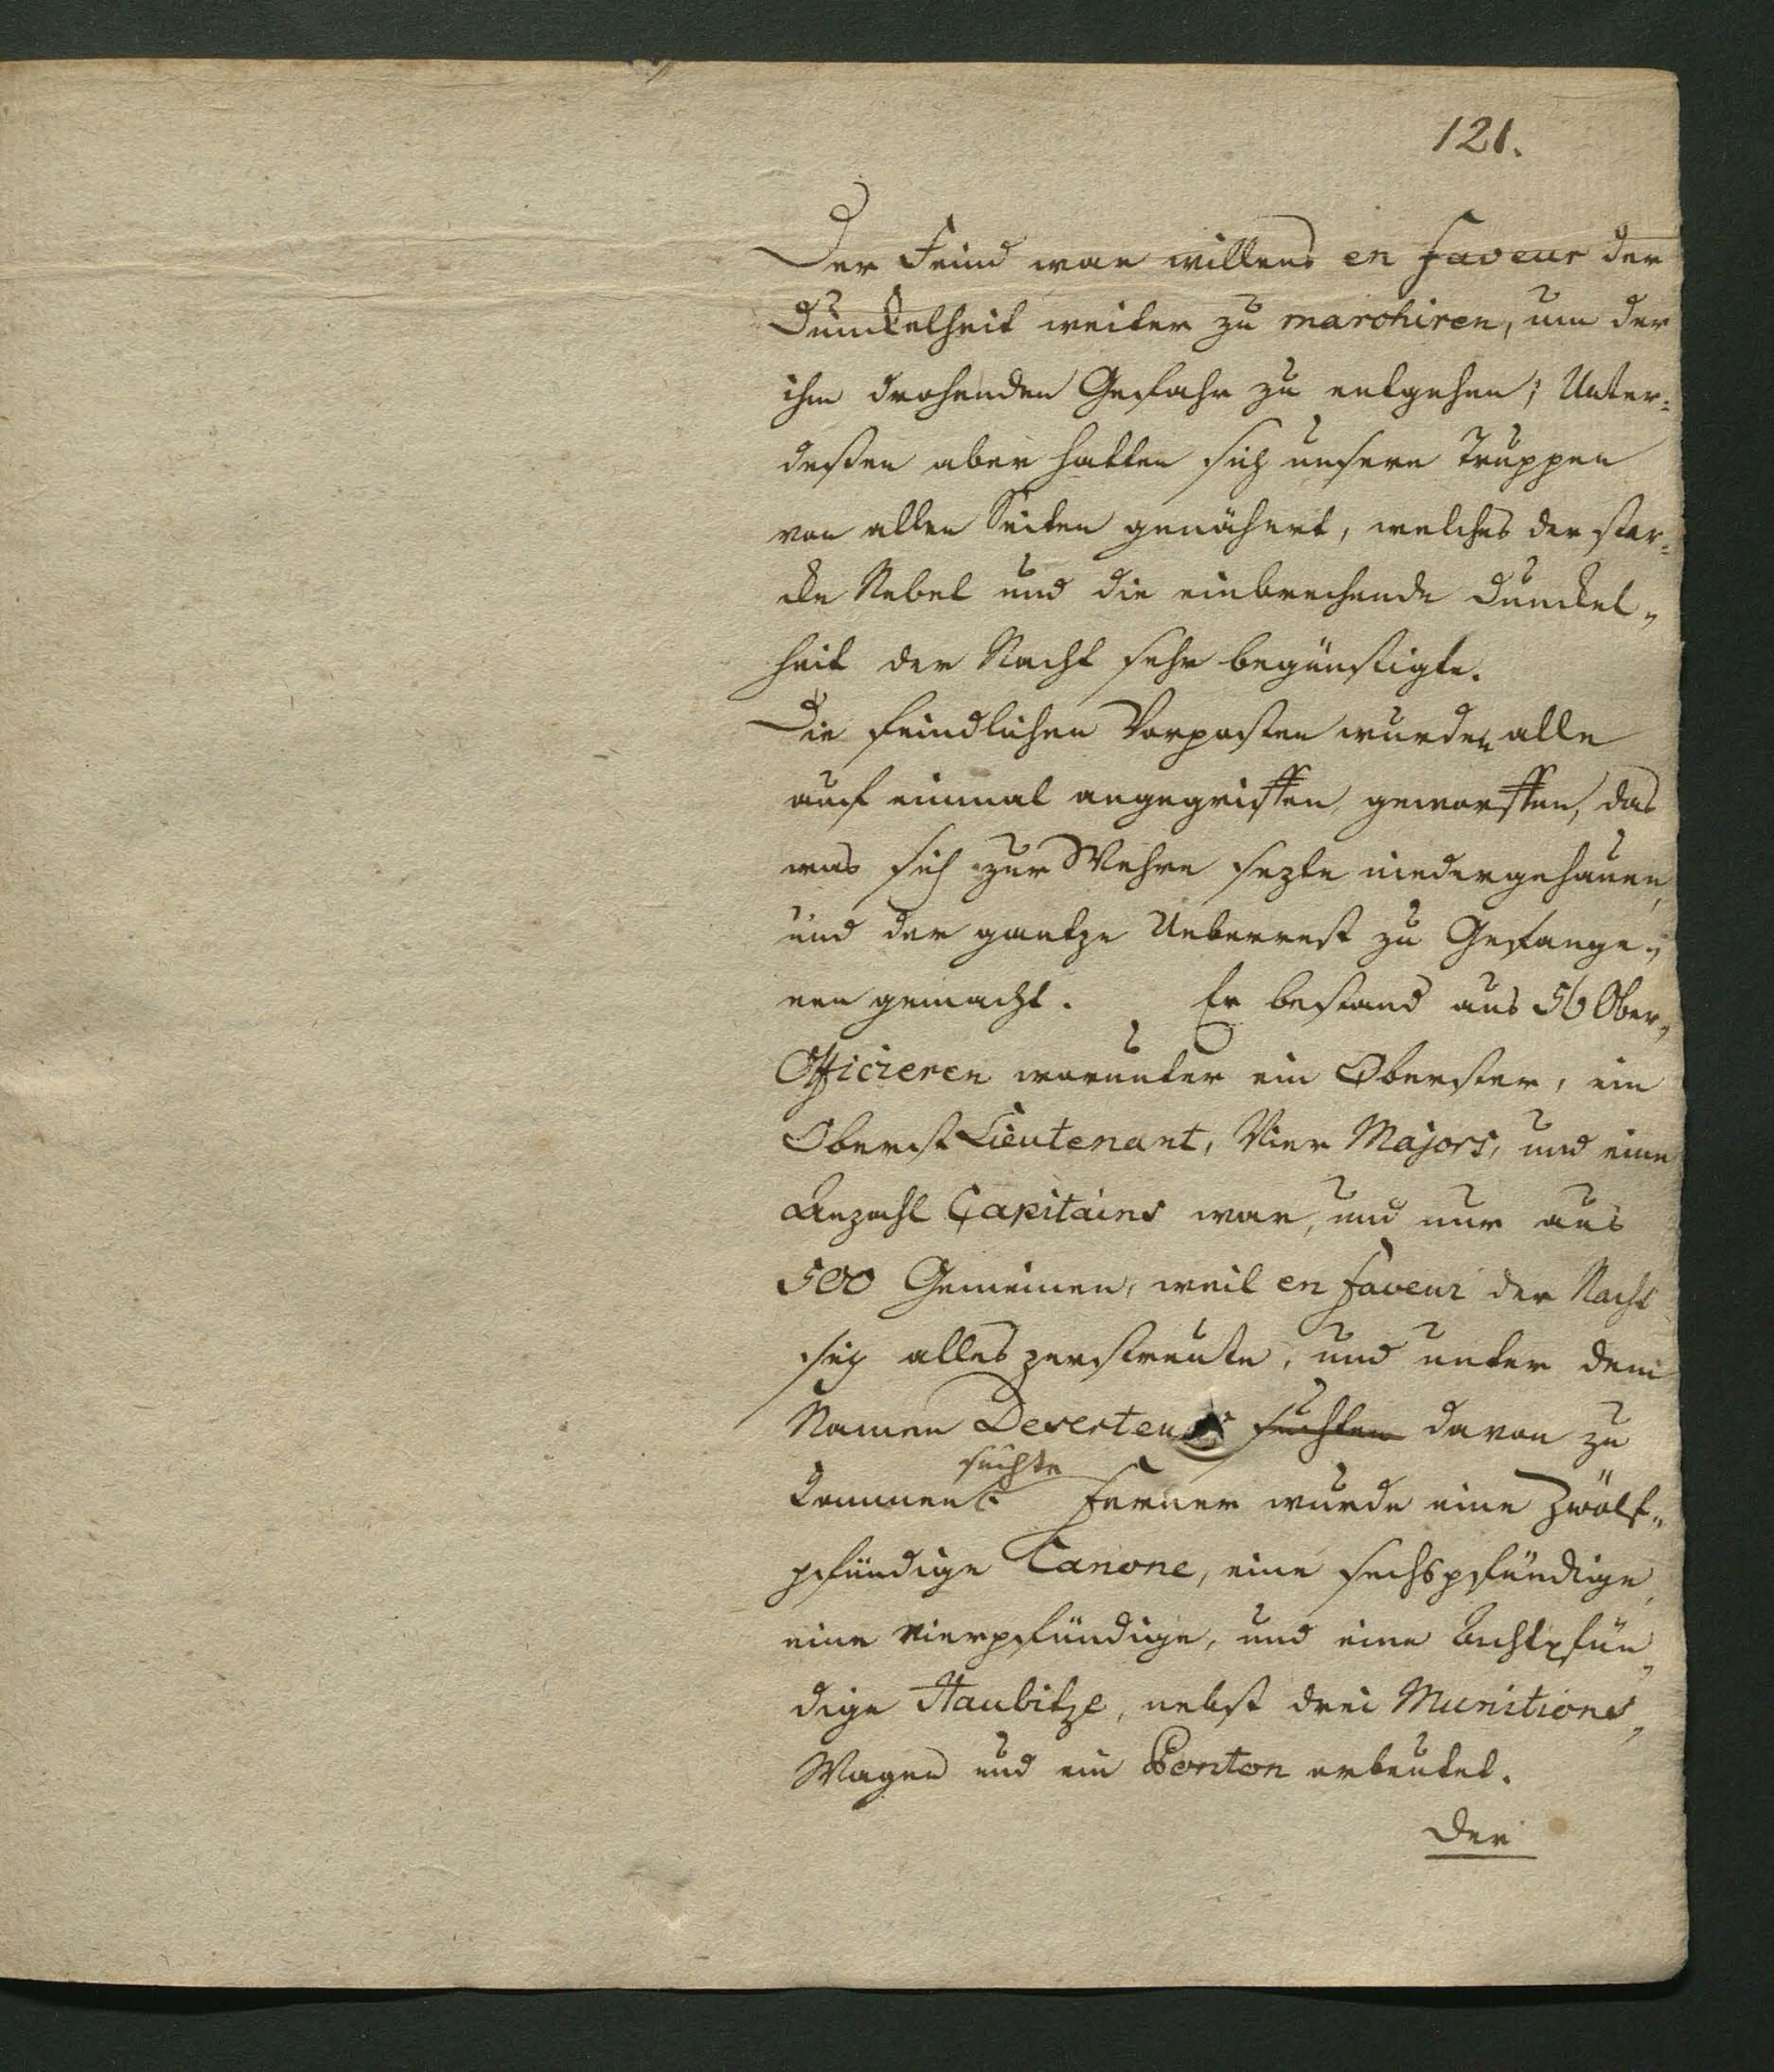 121.
Der Feind war willens en faveur der
Dunckelheit weiter zu marchiren, um der
ihm drohenden Gefahr zu entgehen; Unter=
deßen aber hatten sich unsere Truppen
von allen Seiten genähert, welches der star=
cke Nebel und die einbrechende Dunckel„
heit der Nacht sehr begünstigte.
Die feindlichen Vorposten wurden alle
auf einmal angegriffen, geworffen, das
was sich zur Wehre sezte niedergehauen,
und der gantze Ueberrest zu Gefange„
nen gemacht. Er bestand aus 56 Ober„
Officieren worunter ein Oberster, ein
Oberst Lieutenant, Vier Majors, und eine
Anzahl Capitains war, und nur aus
500 Gemeinen, weil en faveur der Nacht
sich alles zerstreute, und unter dem
Namen Deserteurs suchten davon zu
suchte
kommen. Ferner wurde eine Zwölf„
pfündige Canone, eine sechspfündige,
eine vierpfündige, und eine Achtpfün„
dige Haubitze, nebst drei Munitions„
Wagen und ein Ponton erbeutet.
Der